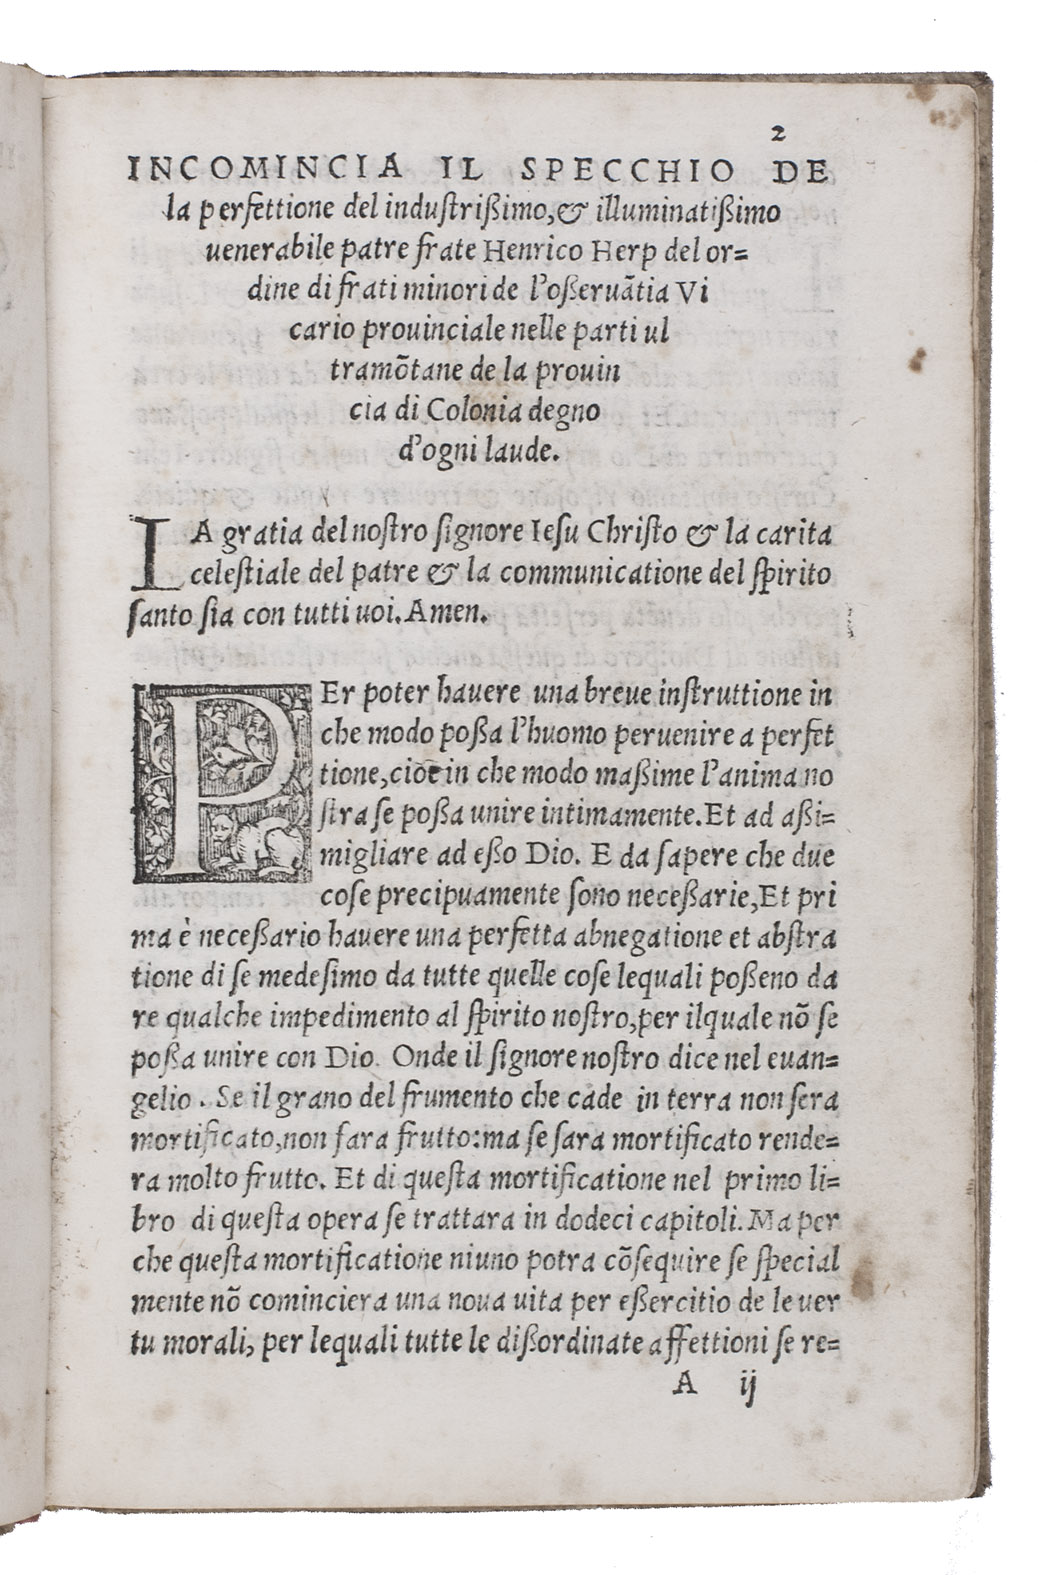 2
INCOMINCIA IL SPECCHIO DE
la perfettione del industrißimo,& illuminatißimo
uenerabile patre frate Henrico Herp del or=
dine di frati minori de l'oßeruãtia Vi
cario prouinciale nelle parti ul
tramõtane de la prouin
cia di Colonia degno
d'ogni laude.
LA gratia del noſtro ſignore Ieſu Chriſto & la carita
celeſtiale del patre & la communicatione del ſpirito
ſanto ſia con tutti uoi. Amen.
PEr poter hauere una breue inſtruttione in
che modo poßa l'huomo peruenire a perfet
tione, cioe in che modo maßime l'anima no
ſtra ſe poßa unire intimamente. Et ad aßi=
migliare ad eßo Dio. E da ſapere che due
coſe precipuamente ſono neceßarie, Et pri
ma è neceßario hauere una perfetta abnegatione et abſtra
tione di ſe medeſimo da tutte quelle coſe lequali poßeno da
re qualche impedimento al ſpirito noſtro, per ilquale nõ ſe
poßa unire con Dio. Onde il ſignore noſtro dice nel euan=
gelio. Se il grano del frumento che cade in terra non ſera
mortificato, non fara frutto: ma ſe ſara mortificato rende=
ra molto frutto. Et di queſta mortificatione nel primo li=
bro di queſta opera ſe trattara in dodeci capitoli. Ma per
che queſta mortificatione niuno potra cõſequire ſe ſpecial
mente nõ cominciera una noua uita per eßercitio de le uer
tu morali, per lequali tutte le dißordinate affettioni ſe re=
A ij